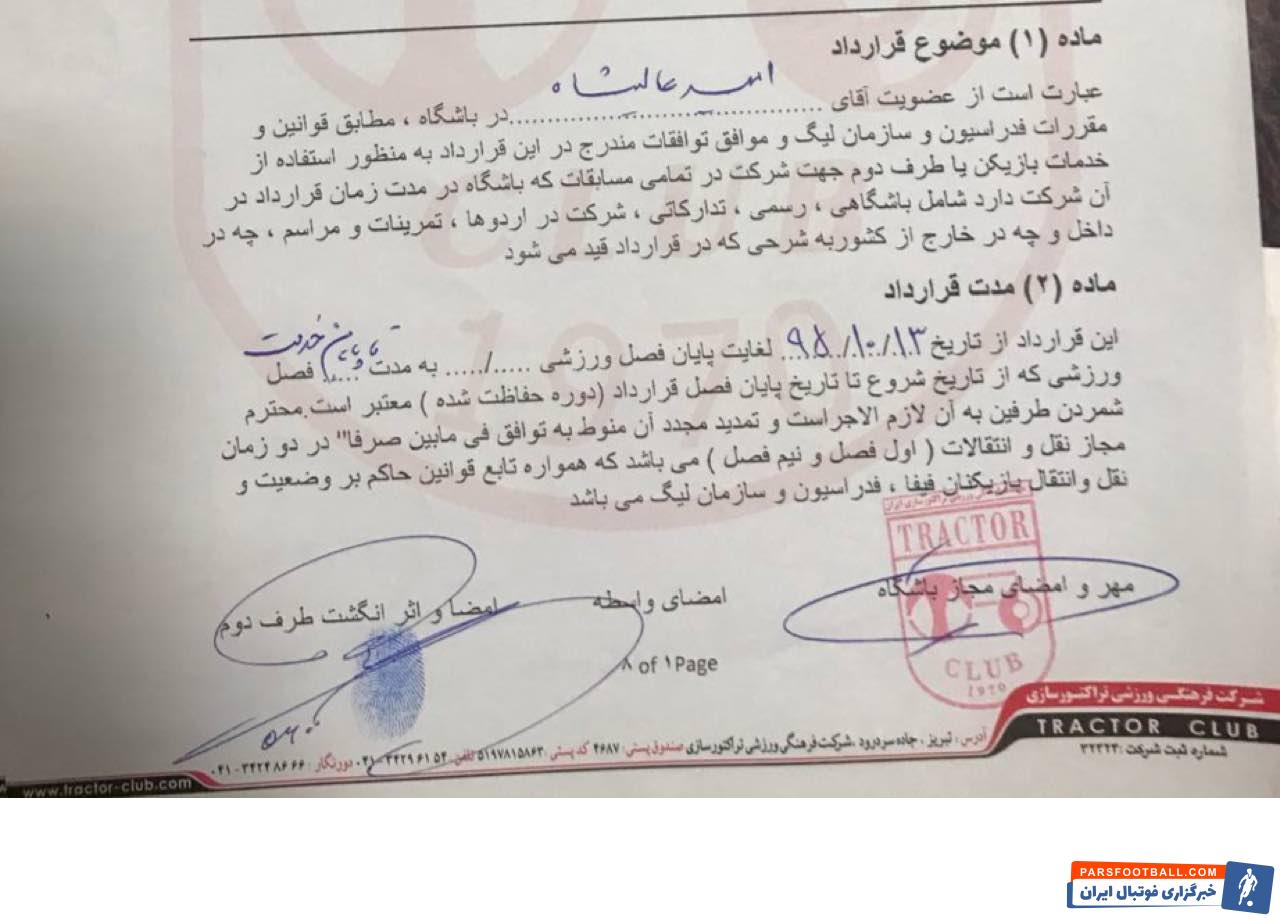 ماده (۱) موضوع قرارداد
عبارت است از عضویت آقای ........................................ در باشگاه ، مطابق قوانین و
مقررات فدراسیون و سازمان لیگ و موافق توافقات مندرج در این قرارداد به منظور استفاده از
خدمات بازیکن یا طرف دوم جهت شرکت در تمامی مسابقات که باشگاه در مدت زمان قرارداد در
آن شرکت دارد شامل باشگاهی ، رسمی ، تدارکاتی ، شرکت در اردوها ، تمرینات و مراسم ، چه در
داخل و چه در خارج از کشوربه شرحی که در قرارداد قید می شود
ماده (۲) مدت قرارداد
این قرارداد از تاریخ ۹۵/۱۰/۱۳ لغایت پایان فصل ورزشی ...../..... به مدت ..... فصل
تا پایان خدمت
ورزشی که از تاریخ شروع تا تاریخ پایان فصل قرارداد (دوره حفاظت شده ) معتبر است.محترم
شمردن طرفین به آن لازم الاجراست و تمدید مجدد آن منوط به توافق فی مابین صرفا" در دو زمان
مجاز نقل و انتقالات ( اول فصل و نیم فصل ) می باشد که همواره تابع قوانین حاکم بر وضعیت و
نقل وانتقال بازیکنان فیفا ، فدراسیون و سازمان لیگ می باشد
TRACTOR
CLUB
1970
مهر و امضای مجاز باشگاه
امضای واسطه
امضا و اثر انگشت طرف دوم
۸ of ۱Page
شرکت فرهنگی ورزشی تراکتورسازی
TRACTOR CLUB
شماره ثبت شرکت : ۳۲۳۲۳
آدرس : تبریز ، جاده سردرود ،شرکت فرهنگی ورزشی تراکتورسازی صندوق پستی : ۴۶۸۷ کد پستی :۵۱۹۷۸۱۵۸۶۳ تلفن: ۳۴۲۹۶۱۵۲-۰۴۱ دورنگار : ۳۴۲۴۸۶۶۶-۰۴۱
www.tractor-club.com
PARSFOOTBALL.COM
خبرگزاری فوتبال ایران